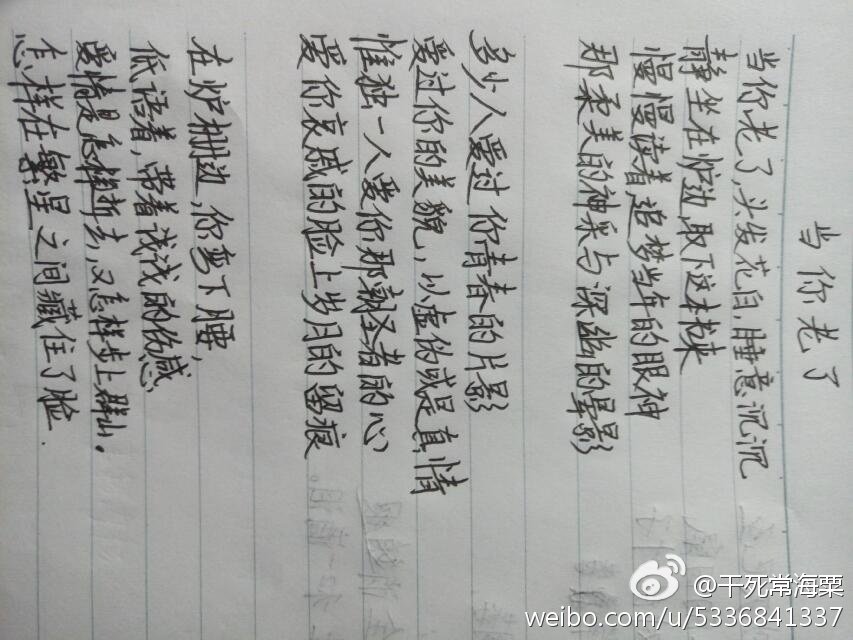 当你老了
当你老了,头发花白,睡意沉沉
静坐在炉边,取下这本书来
慢慢读着,追梦当年的眼神
那柔美的神采与深幽的晕影
多少人爱过你青春的片影
爱过你的美貌,以虚伪或是真情
惟独一人爱你那朝圣者的心
爱你哀戚的脸上岁月的留痕
在炉栅边,你弯下腰,
低语着,带着浅浅的伤感
爱情是怎样逝去,又怎样步上群山.
怎样在繁星之间藏住了脸.
@干死常海粟
weibo.com/u/5336841337